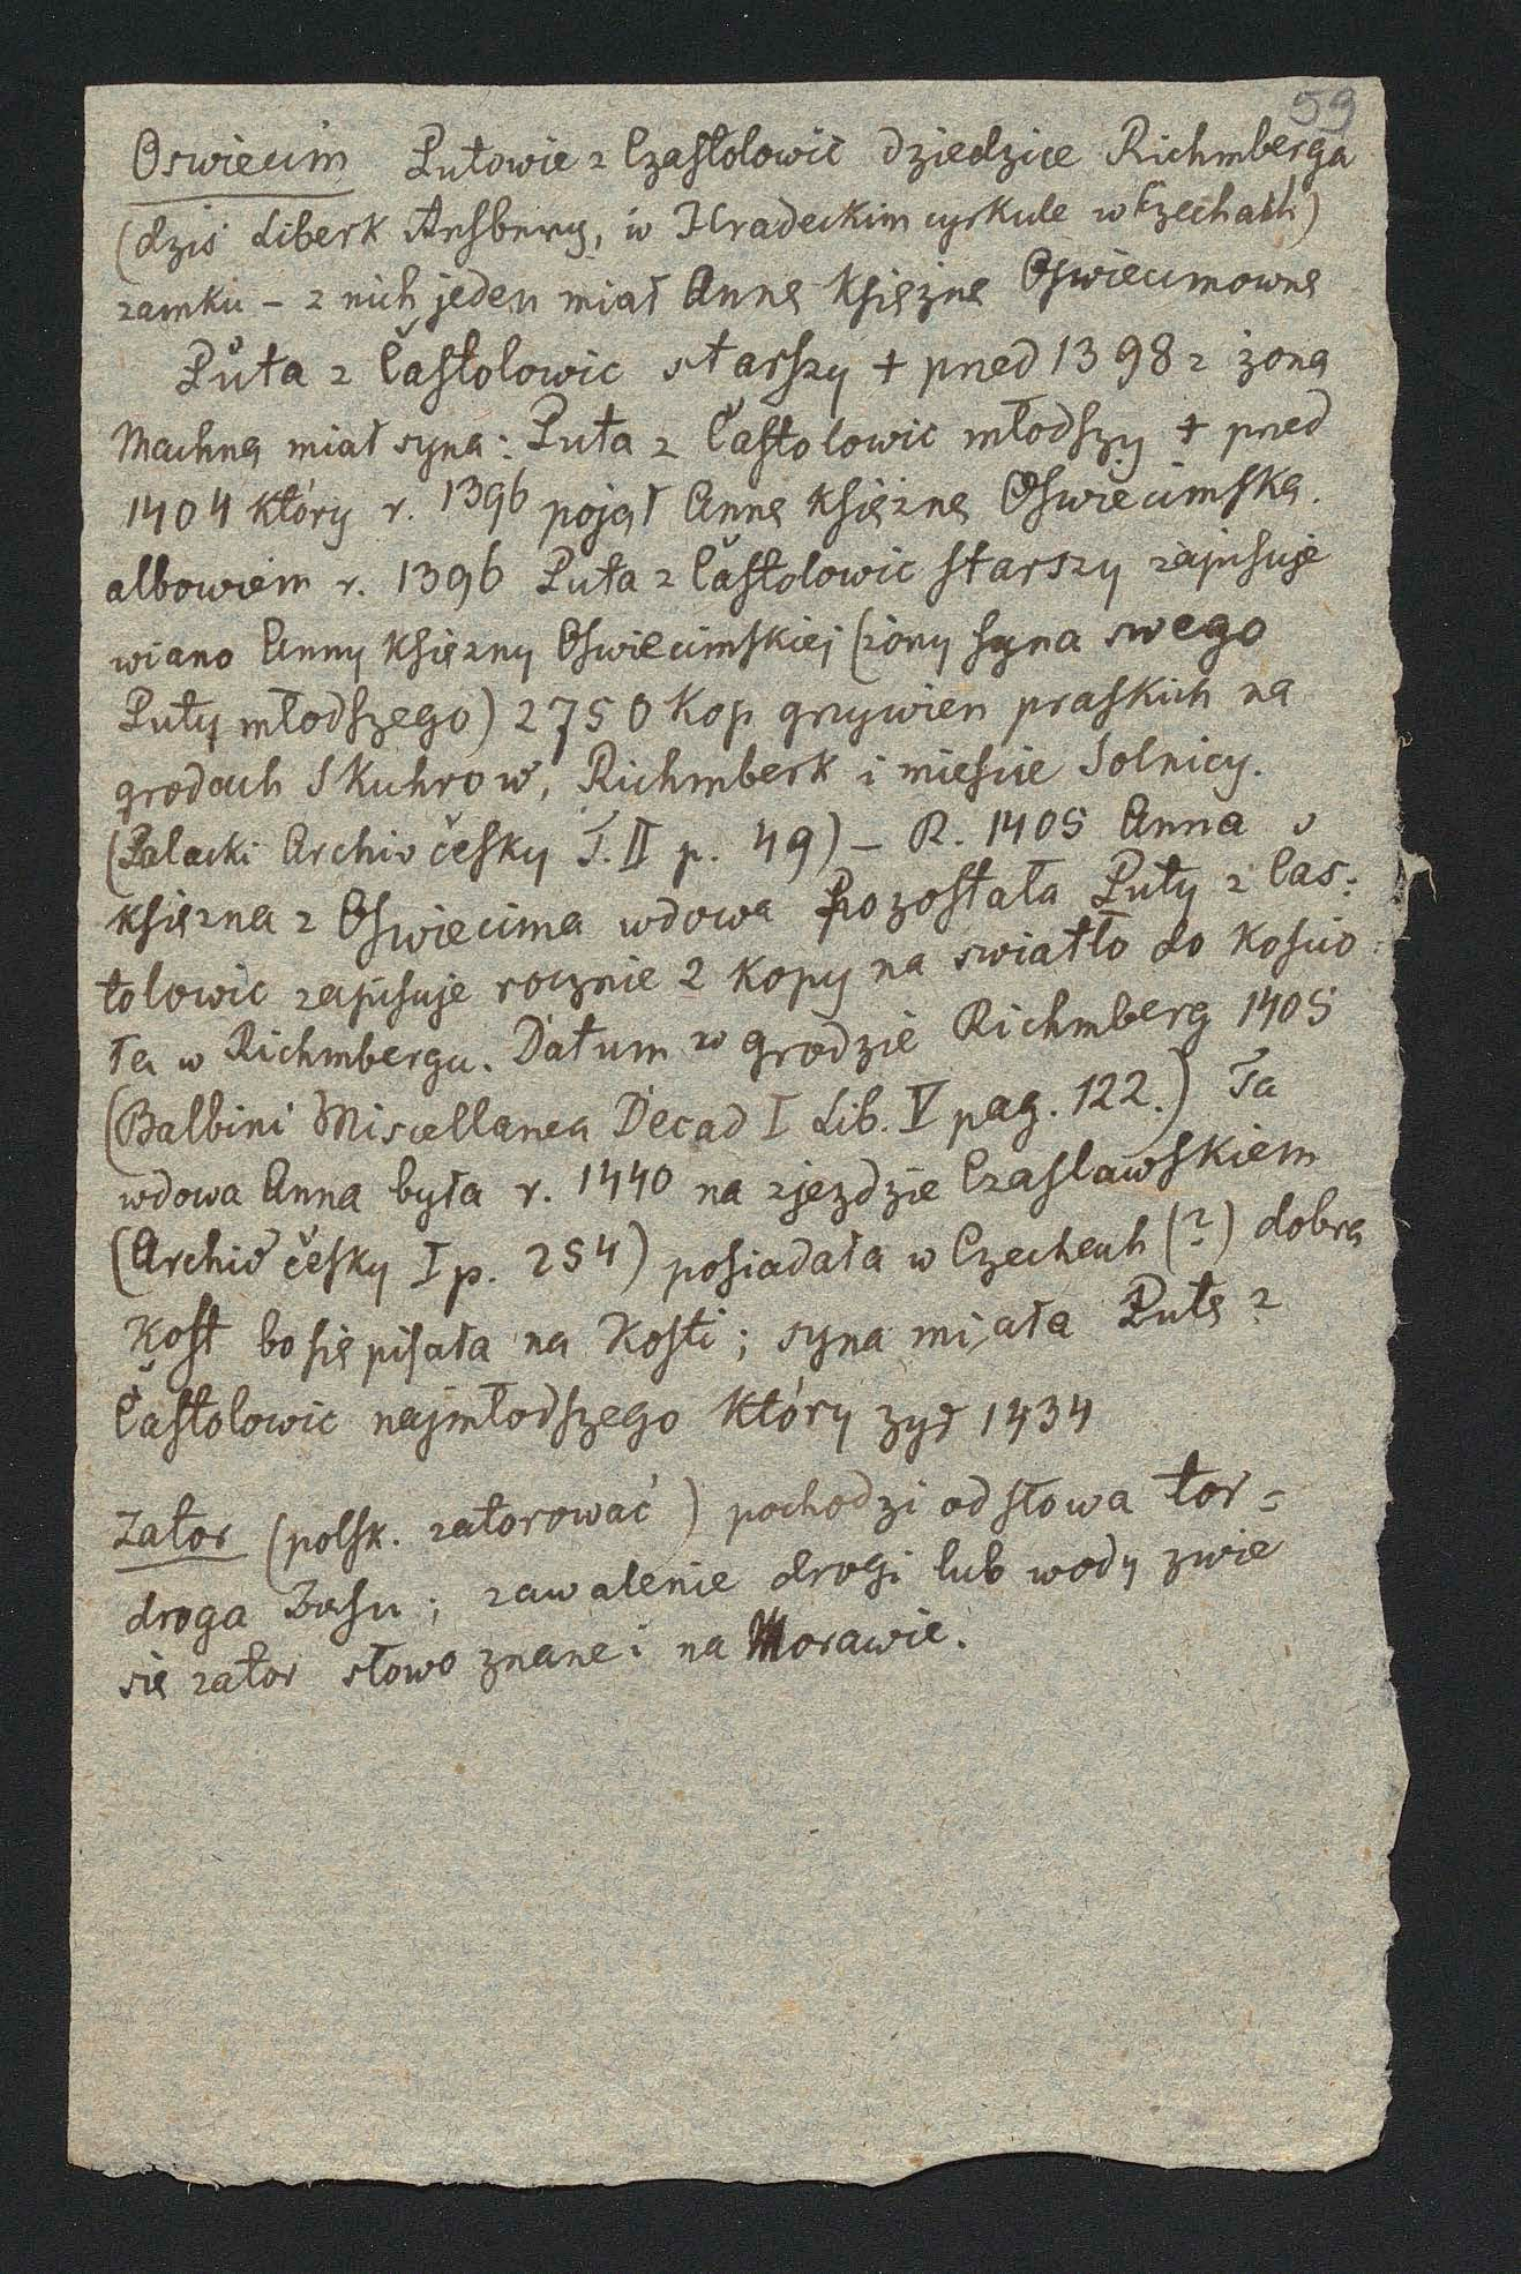 59
Oswiecim Putowie z Czastolowic dziedzice Richmberga
(dzis Liberk, w Hradeckim cyrkule w Czechach)
zamku - z nich jeden miał Annę Księżnę Oswiecimownę
Půta z Častolowic starszy + przed 1398 z żoną
Machną miał syna: Puta z Častolowic młodszy + przed
1404 który r. 1396 pojął Annę Księżnę Oswiecimską.
albowiem r. 1396 Puta z Častolowic starszy zapisuje
wiano Anny Księżny Oswiecimskiej (żony syna swego
Puty młodszego) 2750 Kop grzywien praskich na
grodach Skuhrow, Richmberk i miescie Solnicy.
(Palacki Archiv česky T. II p. 49) – R. 1405 Anna
księzna z Oswiecima wdowa pozostała Puty z Cas:
tolowic zapisuje rocznie 2 Kopy na swiatło do Koscio
ła w Richmbergu. Datum w grodzie Richmberg 1405
(Balbini Miscellanea Decad I Lib. V pag. 122.) Ta
wdowa Anna była r. 1440 na zjezdzie Czaslawskiem
(Archiv česky I p. 254) posiadała w Czechach (?) dobra
Kost bo się pisała na Kosti; syna miała Putę z
Častolowic najmłodszego Który zył 1434
Zator (polsk. zatorować) pochodzi od słowa tor=
droga; zawalenie drogi lub wody zwie
się zator słowo znane i na Morawie.